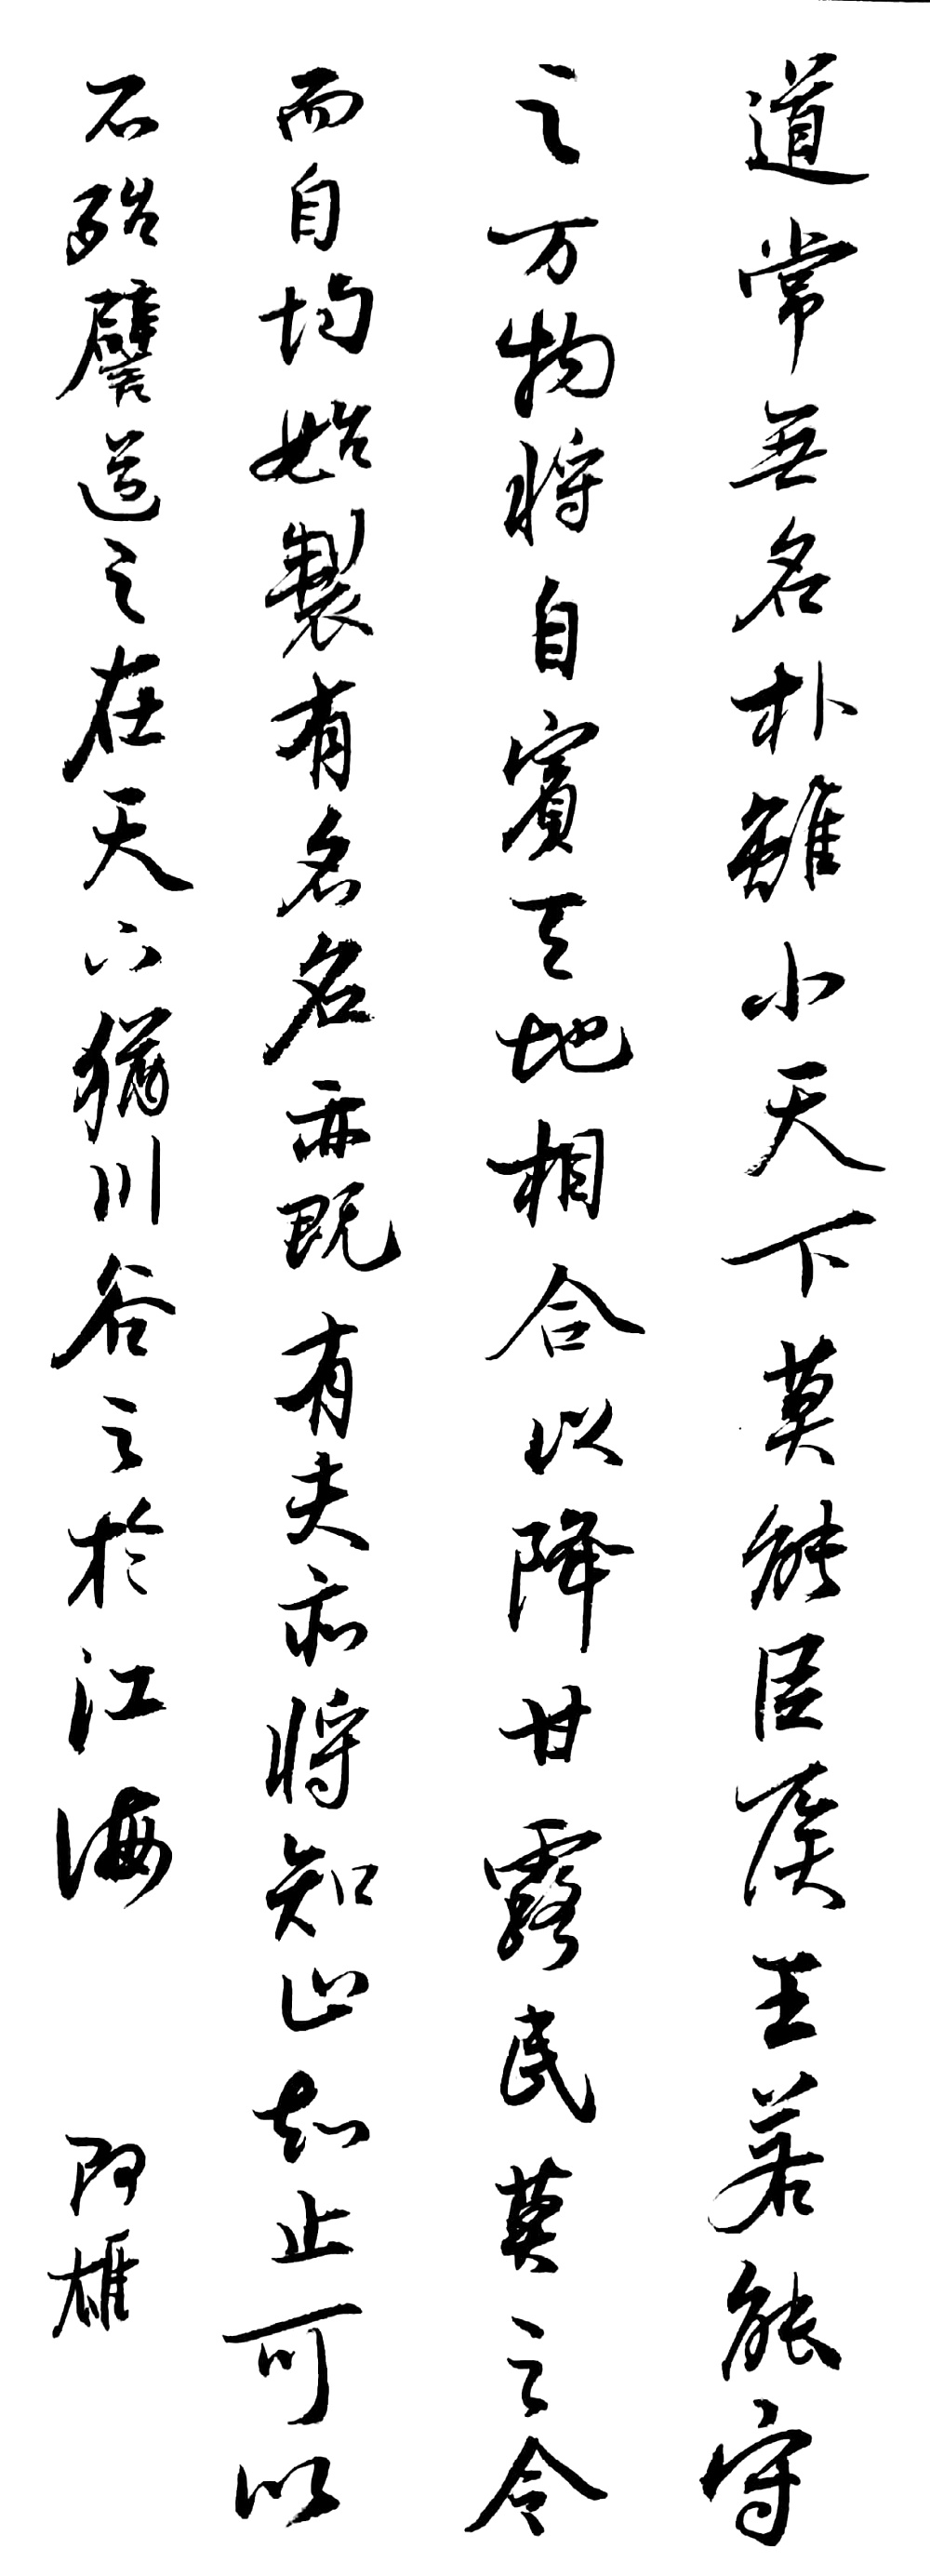 道常無名朴雖小天下莫能臣侯王若能守
之万物将自賓天地相合以降甘露民莫之令
而自均始製有名名亦既有夫亦将知止知止可以
不殆譬道之在天下猶川谷之於江海
阿雄